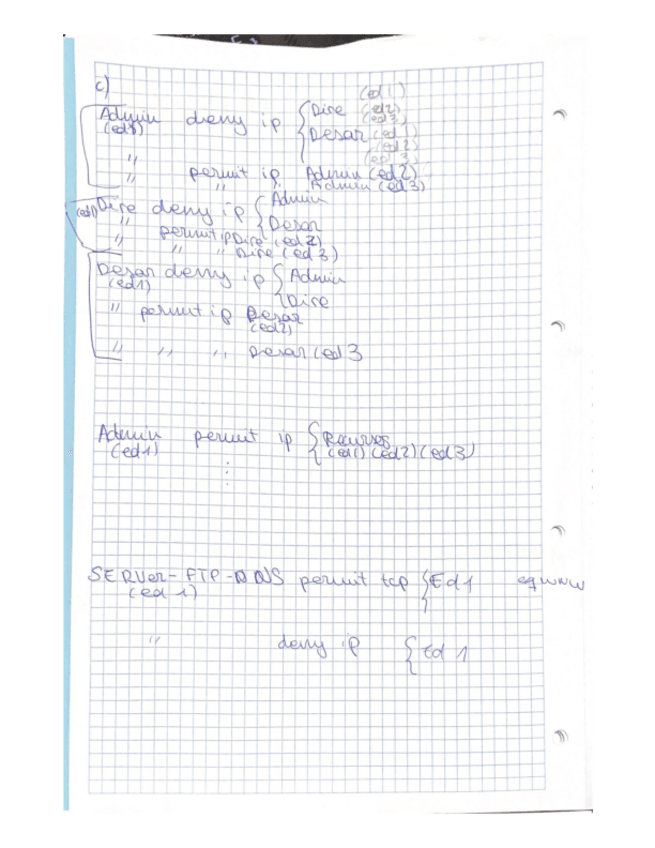 c)
(ed1)
Admin deny ip { Dire (ed2)
(ed1) (ed3)
Desar (ed1)
(ed2)
" (ed3)
" permit ip Admin (ed2)
" " Admin (ed3)
(ed1) Dire deny ip { Admin
" Desar
" permit ip Dire (ed2)
" " Dire (ed3)
Desar deny ip { Admin
(ed1) Dire
" permit ip Desar
(ed2)
" " " Desar (ed3
Admin permit ip { Recursos
(ed1) (ed1) (ed2) (ed3)
⋮
SERVer-FTP-DNS permit tcp { Ed1 eq www
(ed 1)
" deny ip { Ed 1